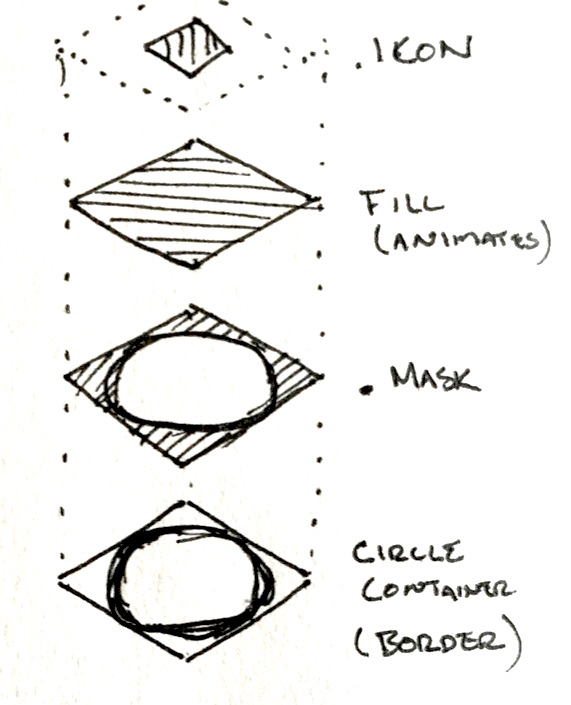 .IKON
FILL
(ANIMATES)
. MASK
CIRCLE
CONTAINER
(BORDER)